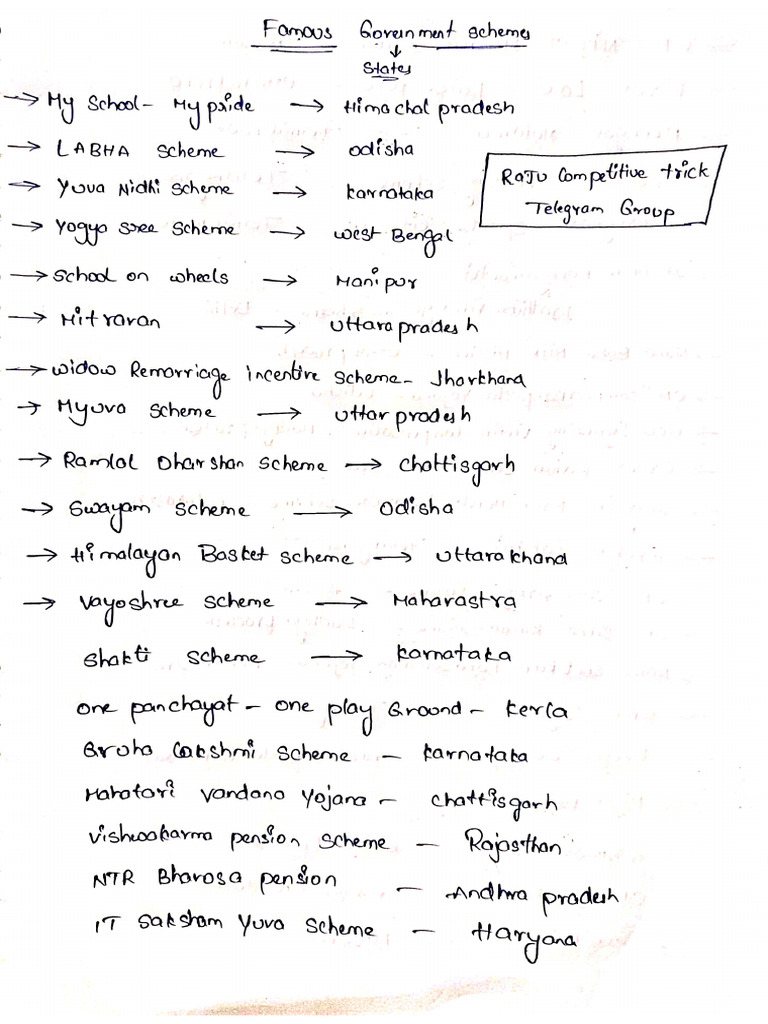 Famous Government schemes
↓
States
→ My School - My pride → Himachal pradesh
→ LABHA scheme → odisha
Raju Competitive trick
Telegram Group
→ Yuva Nidhi scheme → karnataka
→ Yogyo sree scheme → west Bengal
→ School on wheels → Manipur
→ Mitravan → uttarapradesh
→ widow Remarriage incentive scheme - Jharkhand
→ Myuva scheme → uttar pradesh
→ Ramlal Dharshan scheme → chattisgarh
→ Swayam scheme → odisha
→ Himalayan Basket scheme → uttarakhand
→ Vayoshree scheme → Maharastra
Shakti scheme → karnataka
one panchayat - one play Ground - kerla
Gruha Lakshmi scheme - karnataka
Mahatari Vandana Yojana - chattisgarh
Vishwakarma pension scheme - Rajasthan
NTR Bharosa pension - Andhra pradesh
IT Saksham Yuva scheme - Haryana